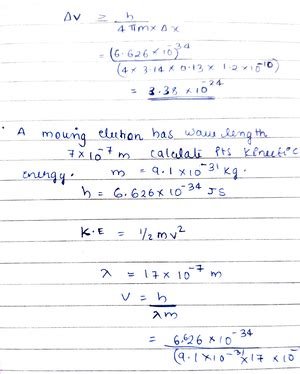 Δv ≥ h
4πm × Δx
= (6.626 × 10)^-34
(4 × 3.14 × 0.13 × 1.2 × 10^-10)
= 3.38 × 10^-24
. A moving eletron has wave length
7 × 10^-7 m calculate its kinetic
energy. m = 9.1 × 10^-31 kg.
h = 6.626 × 10^-34 JS
K.E = 1/2 mv^2
λ = 17 × 10^-7 m
V = h
λm
= 6.626 × 10^-34
(9.1 × 10^-31 × 17 × 10^-